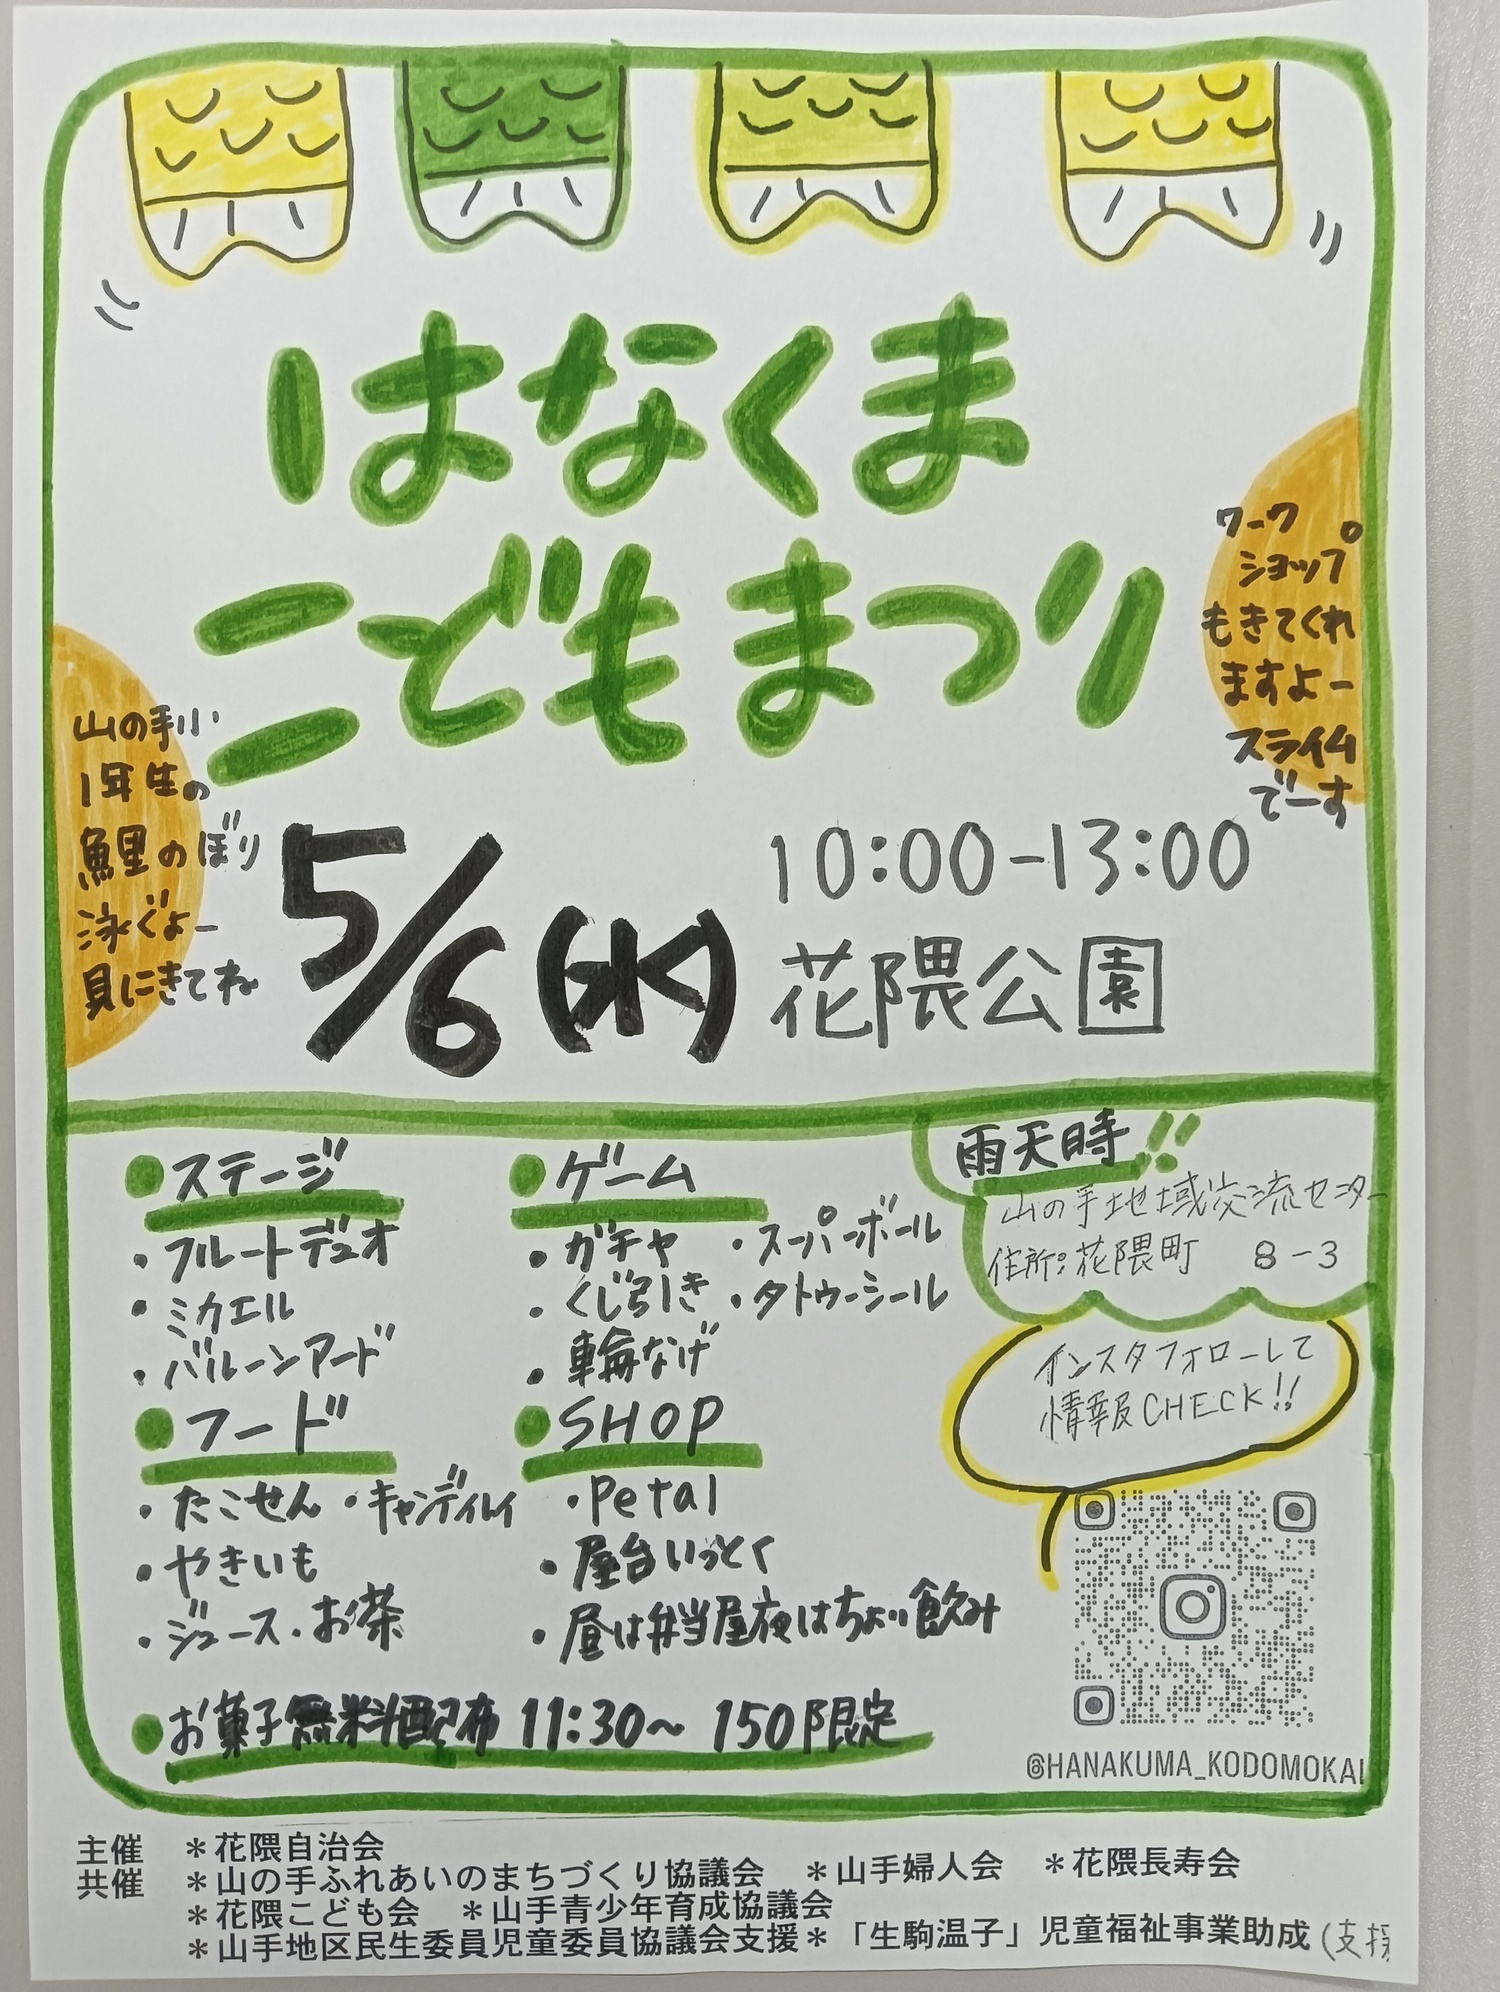 はなくま
こどもまつり
ワーク
ショップ
もきてくれ
ますよー
スライム
でーす
山の手小
1年生の
鯉のぼり
泳ぐよー
見にきてね
5/6(水)
10:00-13:00
花隈公園
ステージ
・フルートデュオ
・ミカエル
・バルーンアード
フード
・たこせん ・キャンディレイ
・やきいも
・ジュース・お茶
ゲーム
・ガチャ ・スーパーボール
・くじ引き ・タトゥーシール
・輪なげ
SHOP
・Petal
・屋台いっとく
・昼は弁当屋夜はちょい飲み
お菓子無料配布 11:30～ 150限定
雨天時!!
山の手地域交流センター
住所:花隈町 8-3
インスタフォローして
情報CHECK!!
@HANAKUMA_KODOMOKAI
主催 ＊花隈自治会
共催 ＊山の手ふれあいのまちづくり協議会 ＊山手婦人会 ＊花隈長寿会
＊花隈こども会 ＊山手青少年育成協議会
＊山手地区民生委員児童委員協議会支援＊「生駒温子」児童福祉事業助成(支援